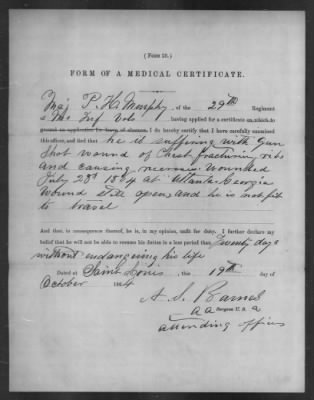 (Form 18.)
FORM OF A MEDICAL CERTIFICATE.
Maj P. H. Murphy, of the 29th Regiment
Mo Inf Vols having applied for a certificate on which to
ground an application for leave of absence, I do hereby certify that I have carefully examined
this officer, and find that he is suffering with Gun
Shot wound of Chest fracturing ribs
and causing necrosis wounded
July 28th 1864 at Atlanta Georgia
wound still open, and he is not fit
to travel
And that, in consequence thereof, he is, in my opinion, unfit for duty. I further declare my
belief that he will not be able to resume his duties in a less period than Twenty days
without endangering his life
Dated at Saint Louis, this 19th day of
October 1864
A. S. Barnes
a a Surgeon U. S. a
attending officers